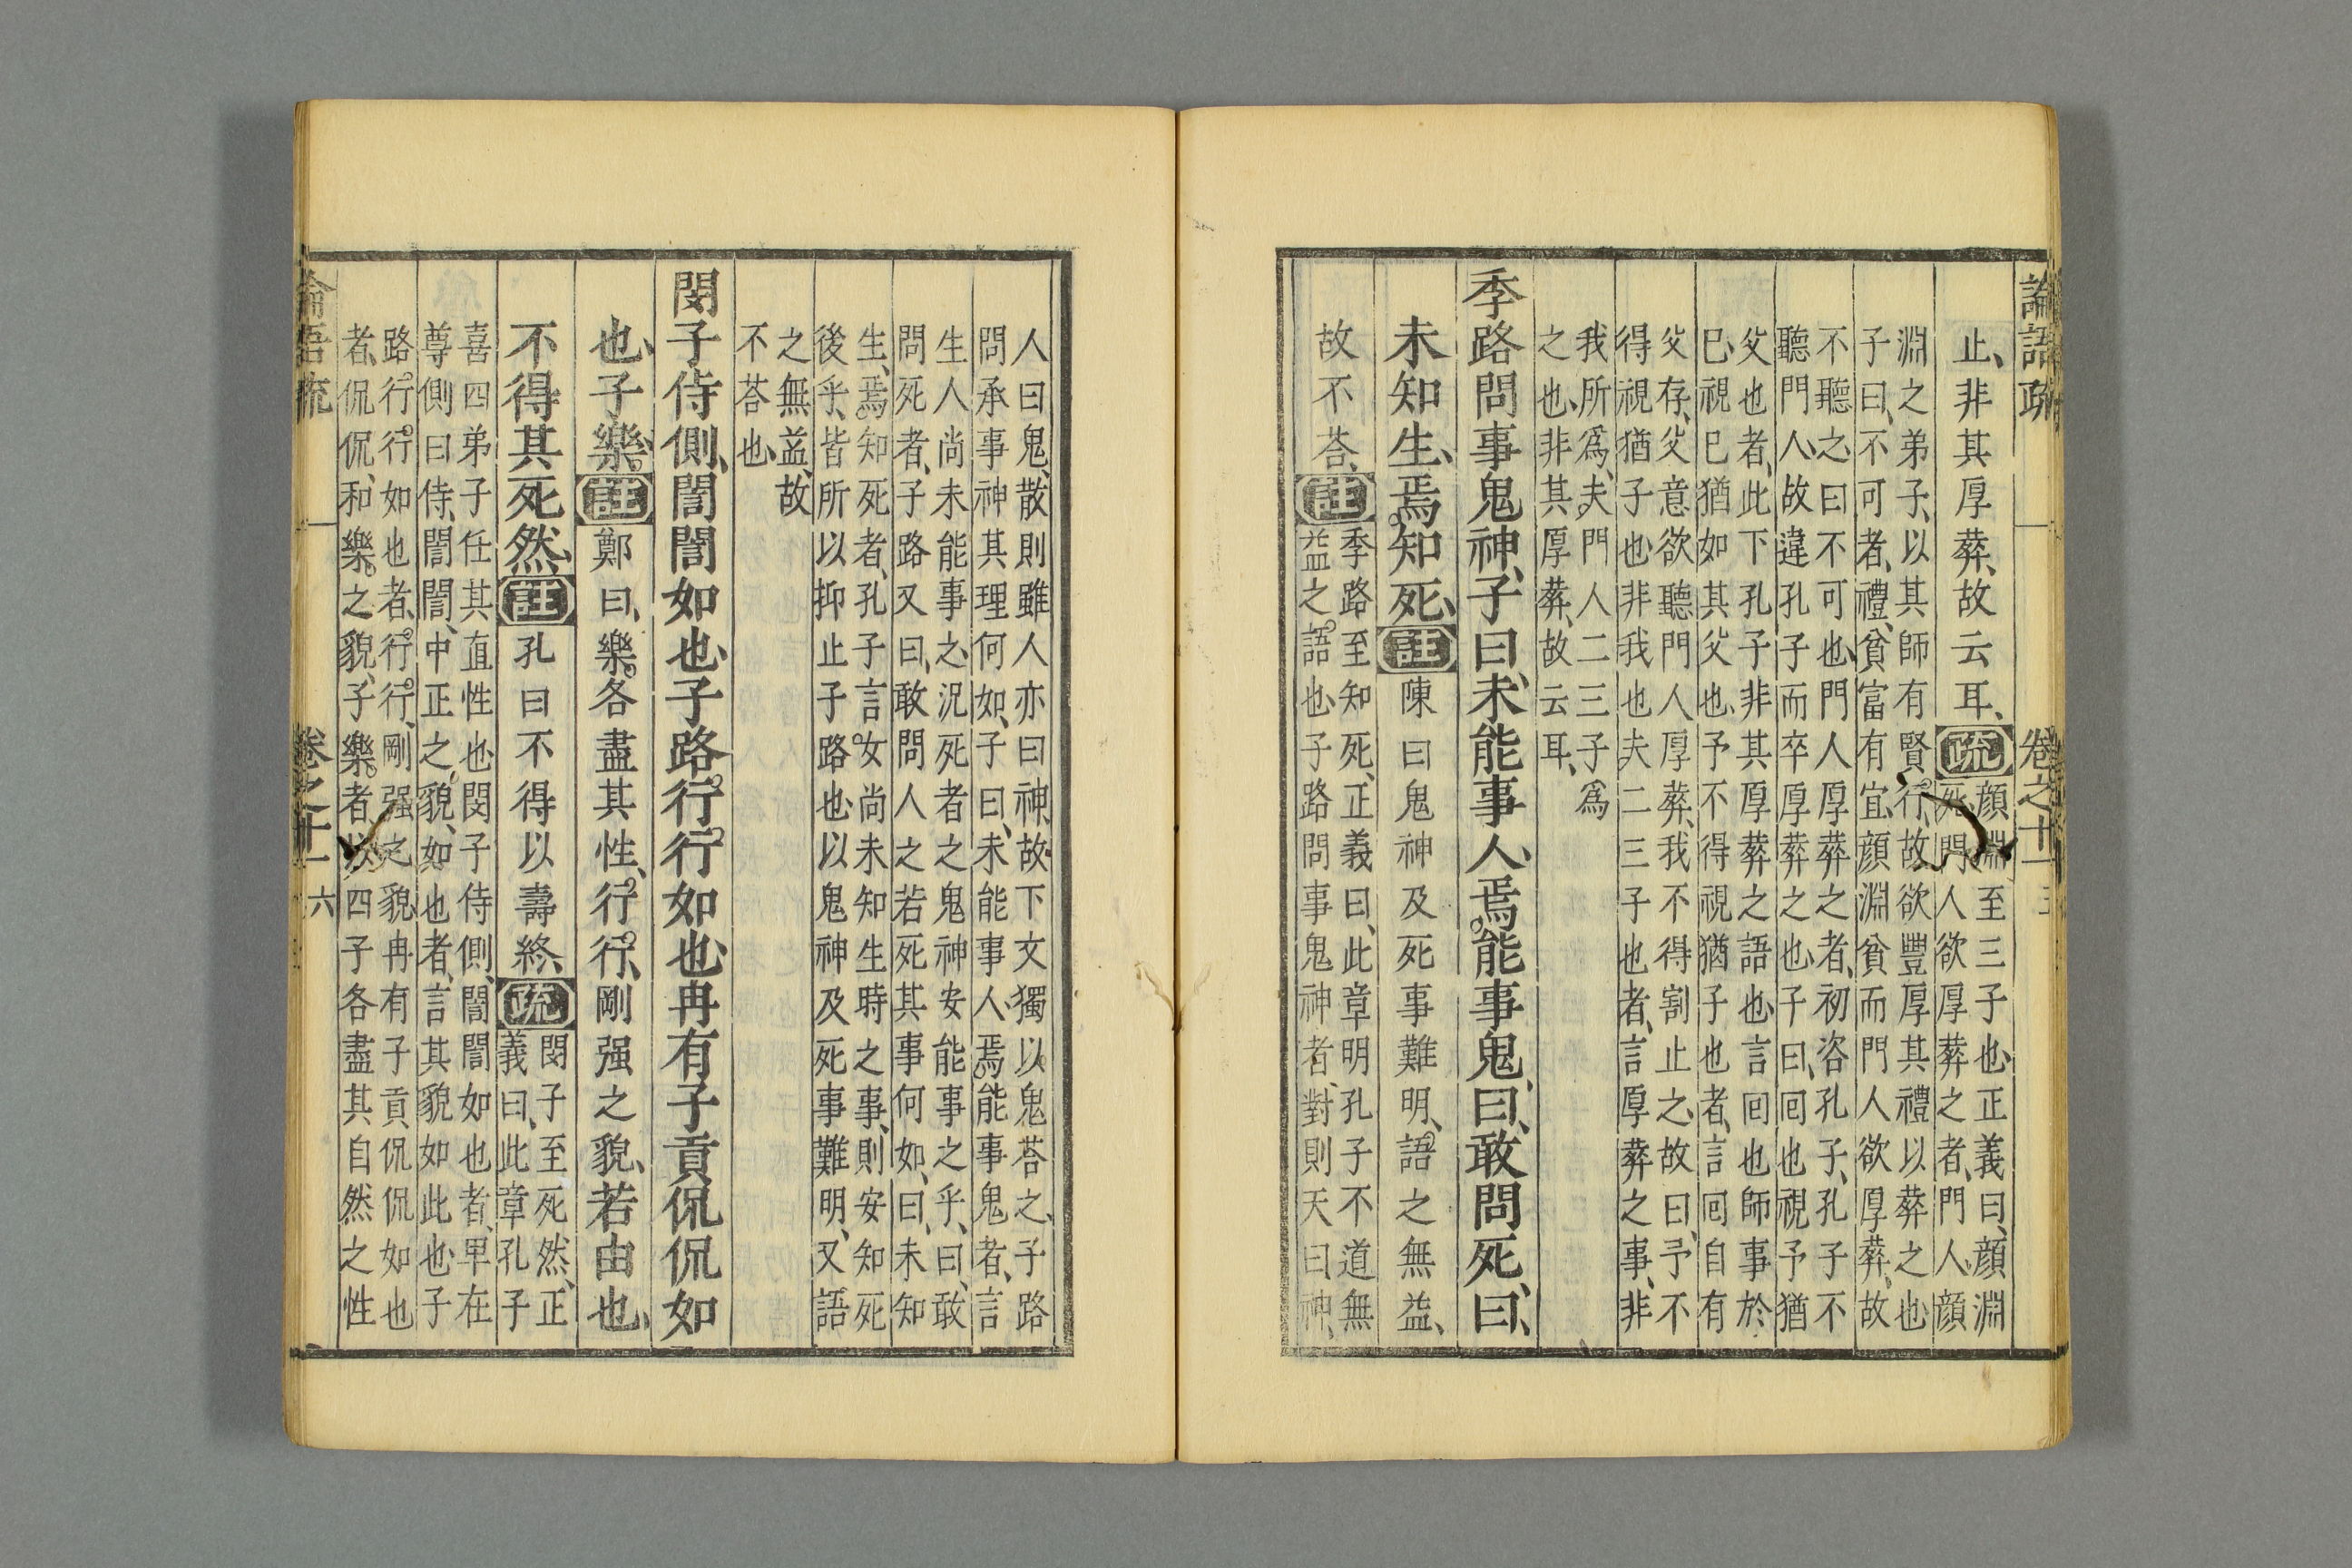 論語疏 卷之十一
止、非其厚葬、故云耳、疏顔淵至三子也、正義曰、顔淵
死門人欲厚葬之者、門人、顔
淵之弟子、以其師有賢行、故欲豐厚其禮以葬之也
子曰、不可者、禮、貧富有宜、顔淵貧而門人欲厚葬、故
不聽之、曰不可也、門人厚葬之者、初咨孔子、孔子不
聽門人、故違孔子而卒厚葬之也、子曰、囘也視予猶
父也者、此下孔子非其厚葬之語也、言囘也師事於
已、視已猶如其父也、予不得視猶子也者、言囘自有
父存、父意欲聽門人厚葬、我不得割止之、故曰、予不
得視猶子也、非我也夫二三子也者、言厚葬之事、非
我所爲、夫門人二三子爲
之也、非其厚葬、故云耳、
季路問事鬼神、子曰、未能事人、焉能事鬼、曰、敢問死、曰、
未知生、焉知死、註陳曰鬼神及死事難明、語之無益、
故不荅、註季路至知死、正義曰、此章明孔子不道無
益之語也、子路問事鬼神者、對則天曰神、
人曰鬼、散則雖人亦曰神、故下文獨以鬼荅之、子路
問承事神其理何如、子曰、未能事人、焉能事鬼者、言
生人尚未能事之、況死者之鬼神安能事之乎、曰、敢
問死者、子路又曰、敢問人之若死其事何如、曰、未知
生、焉知死者、孔子言女尚未知生時之事、則安知死
後乎、皆所以抑止子路也、以鬼神及死事難明、又語
之無益、故
不荅也、
閔子侍側、誾誾如也、子路行行如也、冉有子貢侃侃如
也、子樂、註鄭曰、樂各盡其性、行行、剛强之貌、若由也、
不得其死然、註孔曰不得以壽終、疏閔子至死然、正
義曰、此章孔子
喜四弟子任其直性也、閔子侍側、誾誾如也者、卑在
尊側曰侍、誾誾、中正之貌、如也者、言其貌如此也、子
路行行如也者、行行、剛强之貌、冉有子貢、侃侃如也
者、侃侃、和樂之貌、子樂者、以四子各盡其自然之性
論語疏 卷之十一 六